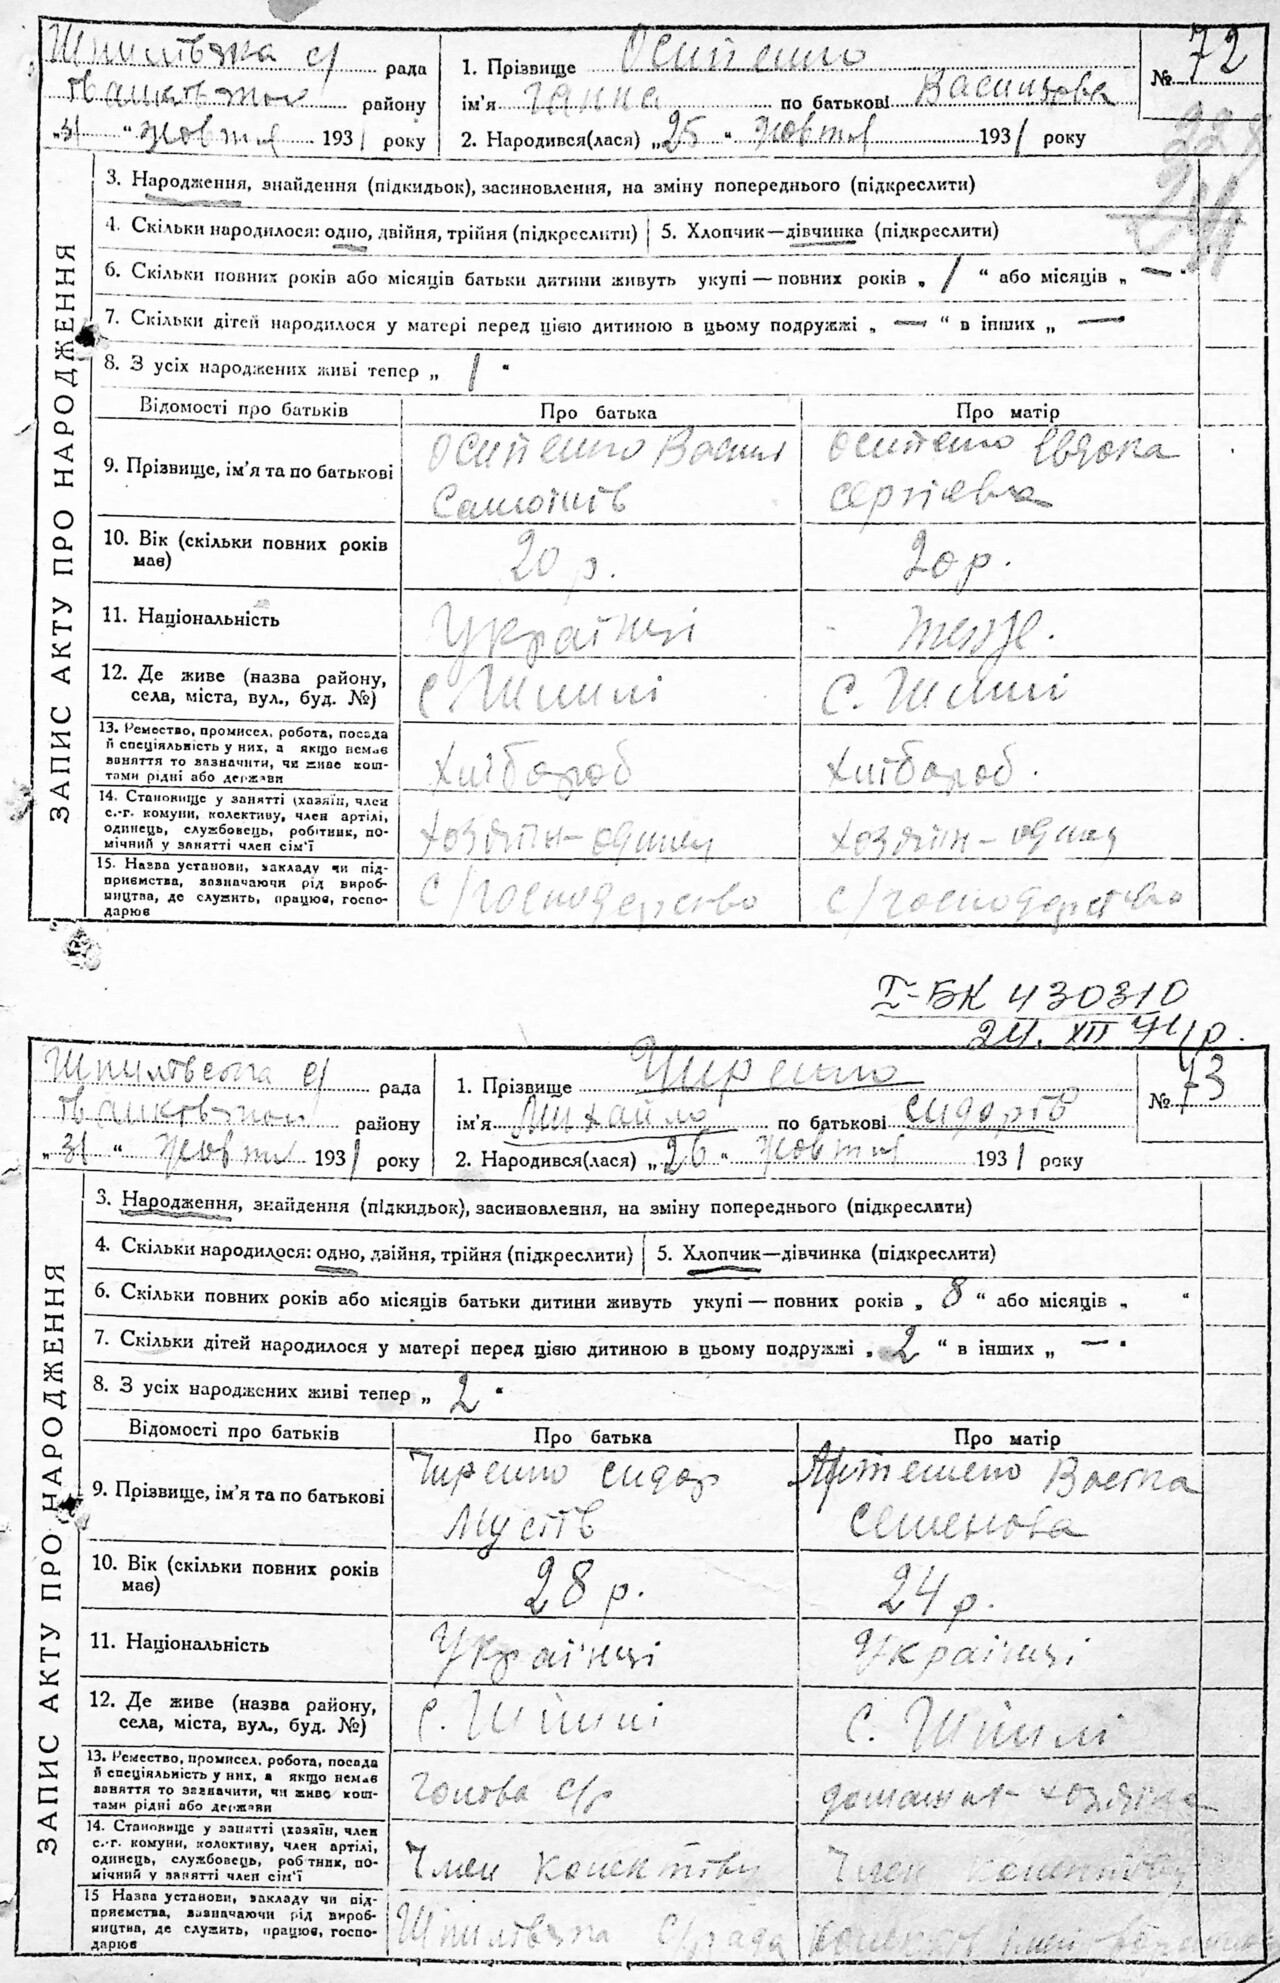 Шпилівська с/ рада
Іванківського району
"31" жовтня 1931 року
1. Прізвище Осипенко
ім'я Ганна по батькові Васильова
2. Народився(лася) „25" жовтня 1931 року
№ 72
ЗАПИС АКТУ ПРО НАРОДЖЕННЯ
3. Народження, знайдення (підкидьок), засиновлення, на зміну попереднього (підкреслити)
4. Скільки народилося: одно, двійня, трійня (підкреслити) 5. Хлопчик—дівчинка (підкреслити)
6. Скільки повних років або місяців батьки дитини живуть укупі — повних років „ 1 “ або місяців „ — “
7. Скільки дітей народилося у матері перед цією дитиною в цьому подружжі „ — “ в інших „ —
8. З усіх народжених живі тепер „ 1 “
Відомості про батьків Про батька Про матір
9. Прізвище, ім'я та по батькові
Осипенко Василь
осипенко Євдока
сергієвна
10. Вік (скільки повних років
має)
20 р.
20 р.
11. Національність
Українці
12. Де живе (назва району,
села, міста, вул., буд. №)
с. Шпилі
С. Шпилі
13. Ремество, промисел, робота, посада
й спеціяльність у них, а якщо немає
заняття то зазначити, чи живе кош-
тами рідні або держави
Хлібороб
Хлібороб.
14. Становище у занятті (хазяїн, член
с.-г. комуни, колективу, член артілі,
одинець, службовець, робітник, по-
мічний у занятті член сім'ї
хозяїн-одинец
хозяїн-одинец
15. Назва установи, закладу чи під-
приємства, зазначаючи рід вироб-
ництва, де служить, працює, госпо-
дарює
с/господарство
с/господарство
І-БК 430310
24. XII 74р.
Шпилівська с/ рада
Іванківського району
„31“ жовтня 1931 року
1. Прізвище Чиренко
ім'я Михайло по батькові Сидорів
2. Народився(лася) „26“ жовтня 1931 року
№ 73
ЗАПИС АКТУ ПРО НАРОДЖЕННЯ
3. Народження, знайдення (підкидьок), засиновлення, на зміну попереднього (підкреслити)
4. Скільки народилося: одно, двійня, трійня (підкреслити) 5. Хлопчик—дівчинка (підкреслити)
6. Скільки повних років або місяців батьки дитини живуть укупі — повних років „ 8 “ або місяців „ “
7. Скільки дітей народилося у матері перед цією дитиною в цьому подружжі „ 2 “ в інших „ — “
8. З усіх народжених живі тепер „ 2 “
Відомості про батьків Про батька Про матір
9. Прізвище, ім'я та по батькові
Чиренко Сидор
семенова
10. Вік (скільки повних років
має)
28 р.
24 р.
11. Національність
Українці
Українці
12. Де живе (назва району,
села, міста, вул., буд. №)
с. Шпилі
С. Шпилі
13. Ремество, промисел, робота, посада
й спеціяльність у них, а якщо немає
заняття то зазначити, чи живе кош-
тами рідні або держави
голова с/р
домашня хозяйка
14. Становище у занятті (хазяїн, член
с.-г. комуни, колективу, член артілі,
одинець, службовець, робітник, по-
мічний у занятті член сім'ї
Член колективу
Член колективу
15 Назва установи, закладу чи під-
приємства, зазначаючи рід вироб-
ництва, де служить, працює, госпо-
дарює
Шпилівська с/рада